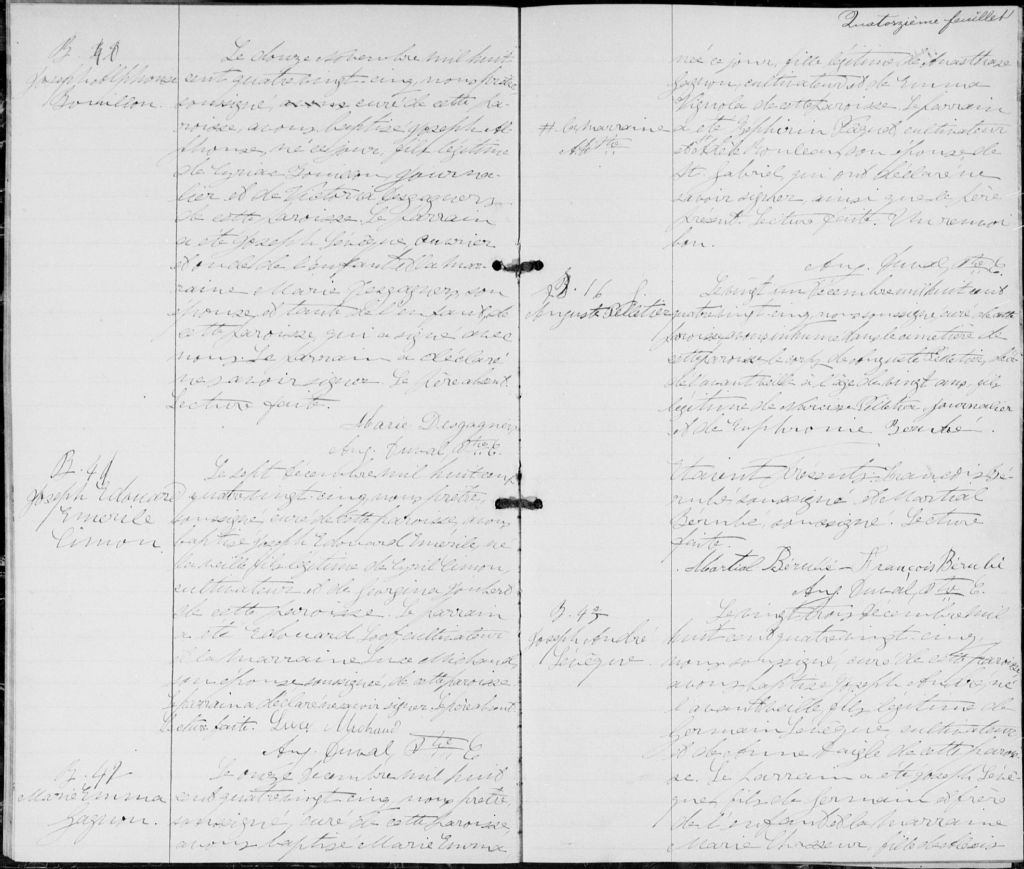 B. 40
Joseph Alphonse
Bouillon.
Le douze novembre mil huit
cent quatre vingt-cinq, nous prêtre
soussigné, curé de cette pa-
roisse, avons baptisé Joseph Al
phonse, né ce jour, fils légitime
de journa-
lier et de Victoria Desgagners
de cette paroisse. Le parrain
a été Joseph Lévêque, ouvrier
et oncle de l'enfant et la mar-
raine Marie Desgagners son
épouse et tante de l'enfant de
cette paroisse, qui a signé avec
nous. Le parrain a déclaré
ne savoir signer. Le père absent.
Lecture faite.
Marie Desgagners
Aug. Duval Ptre C.
B. 41
Joseph Edouard
Emerile
Simon.
Le sept décembre mil huit cent
quatre vingt-cinq, nous prêtre
soussigné curé de cette paroisse, avons
baptisé Joseph Edouard Emerile, né
la veille fils légitime de Cyril Simon,
cultivateur et de Georgina Joubert
de cette paroisse. Le parrain
a été Edouard cultivateur
et la marraine Luce Michaud,
son épouse soussignée, de cette paroisse
le parrain a déclaré ne savoir signer. Le père absent.
Lecture faite. Luce Michaud
Aug. Duval Ptre C
B. 42
Marie Emma
Gagnon.
Le onze décembre mil huit
cent quatre vingt cinq, nous prêtre,
soussigné, curé de cette paroisse,
avons baptisé Marie Emma
Quatorzième feuillet
née ce jour, fille légitime de
Gagnon, cultivateur et de Emma
Vignola de cette paroisse. Le parrain
# la marraine
a été Zéphirin cultivateur
et # Adèle Rouleau, son épouse de
St. Gabriel qui ont déclaré ne
savoir signer ainsi que le père
présent. Lecture faite. Un renvoi
bon.
Aug. Duval, Ptre C.
S. 16
Auguste Pelletier
Le vingt un décembre mil huit cent
quatre vingt cinq, nous soussigné curé de cette
paroisse avons inhumé dans le cimetière de
cette paroisse le corps de Auguste Pelletier, décé-
dé l'avant veille à l'âge de vingt ans, fils
légitime de Narcisse Pelletier, journalier
et de Euphromie Bérubé.
Etaient présents François Bé-
rubé soussigné et Martial
Bérubé, soussigné. Lecture
faite.
Martial Bérubé – François Bérubé
Aug. Duval, Ptre C.
B. 43
Joseph André
Lévêque
Le vingt trois décembre mil
huit cent quatre vingt cinq,
nous soussigné, curé de cette paroisse
avons baptisé Joseph André, né
l'avant veille, fils légitime de
Germain Lévêque, cultivateur
et de de cette parois-
se. Le parrain a été Joseph Lévê-
que, fils de Germain et frère
de l'enfant et la marraine
Marie Chasseur, fille de